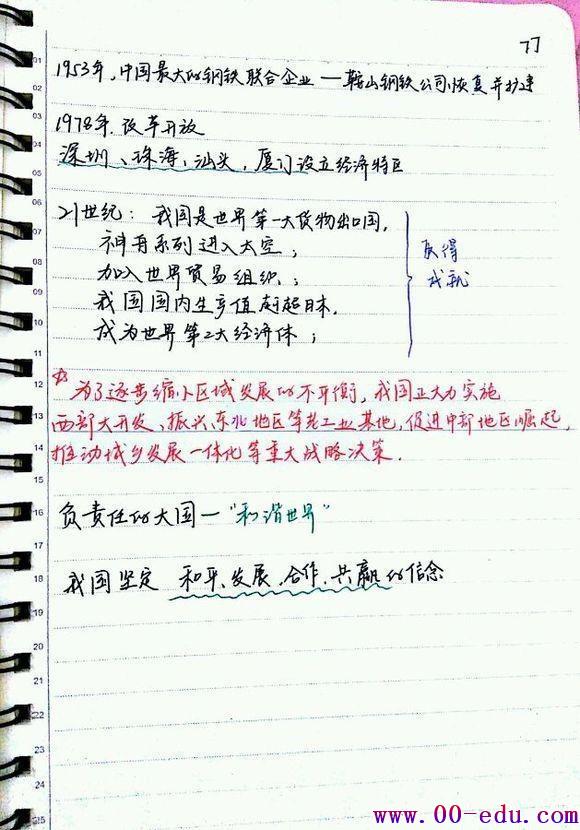 77
1953年,中国最大的钢铁联合企业—鞍山钢铁公司恢复并扩建
1978年.改革开放
深圳、珠海、汕头,厦门设立经济特区
21世纪:我国是世界第一大货物出口国,
神舟系列进入太空;
加入世界贸易组织;
我国国内生产值赶超日本,
成为世界第2大经济体;
获得
成就
为了逐步缩小区域发展的不平衡,我国正大力实施
西部大开发、振兴东北地区等老工业基地,促进中部地区崛起,
推动城乡发展一体化等重大战略决策.
负责任的大国—"和谐世界"
我国坚定 和平、发展、合作、共赢的信念
www.00-edu.com